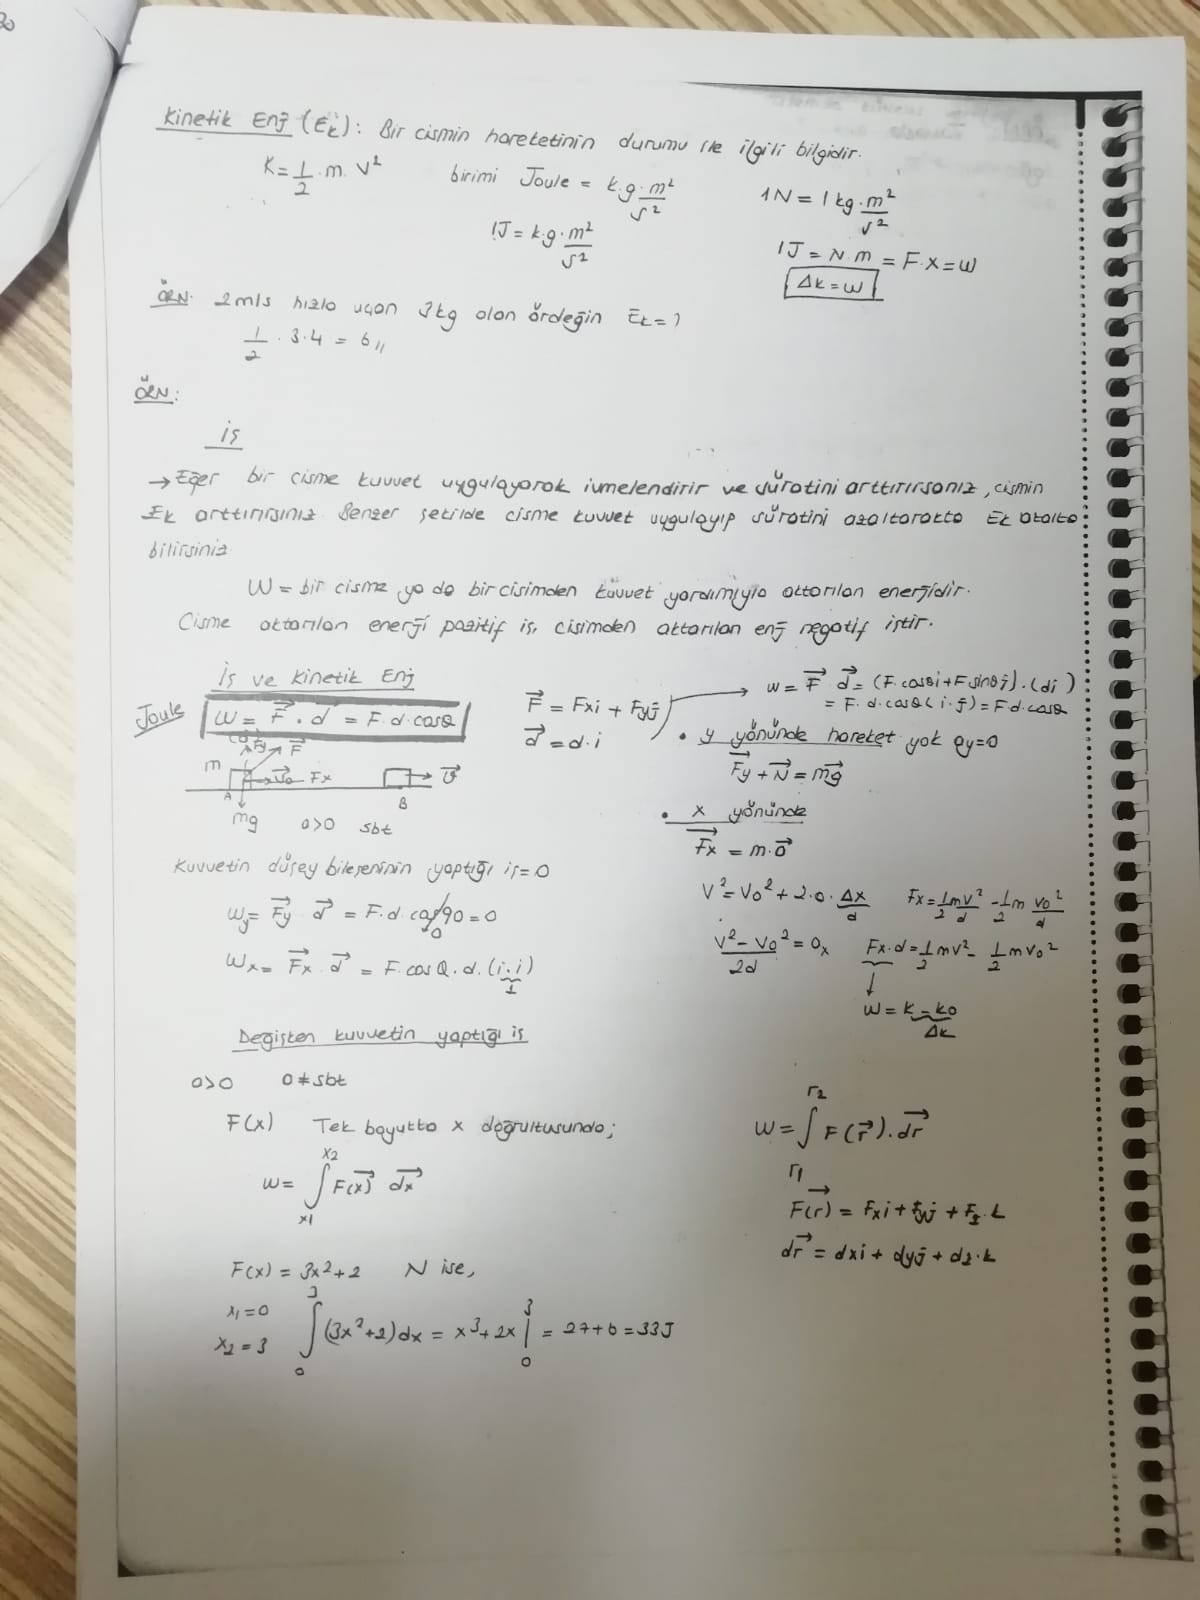 Kinetik Enj (Ek): Bir cismin hareketinin durumu ile ilgili bilgidir.
K = 1/2 . m . v²   birimi Joule = k.g . m²/s²   1N = 1 kg . m²/s²
1J = k.g . m²/s²   1J = N.m = F.x = W
Δk = W
ÖRN: 2m/s hızla uçan 3kg olan ördeğin Ek = ?
1/2 . 3.4 = 6//
ÖRN:
İş
→ Eğer bir cisme kuvvet uygulayarak ivmelendirir ve süratini arttırırsanız, cismin
Ek arttırırsınız. Benzer şekilde cisme kuvvet uygulayıp süratini azaltarakta Ek azalta
bilirsiniz.
W = bir cisme ya da bir cisimden kuvvet yardımıyla aktarılan enerjidir.
Cisme aktarılan enerji pozitif iş, cisimden aktarılan enj negatif iştir.
İş ve Kinetik Enj
Joule   W = F⃗ . d⃗ = F.d.cosθ
F⃗ = Fxi + Fyj   → W = F⃗ d⃗ = (F.cosθi + F sinθj).(di)
d⃗ = d.i   = F.d.cosθ(i.j) = F.d.cosθ
Fy F⃗
m v⃗o Fx   v⃗
A   B
mg   a>0   sbt
• y yönünde hareket yok ay=0
F⃗y + N⃗ = mg⃗
• x yönünde
F⃗x = m.a⃗
Kuvvetin düşey bileşeninin yaptığı iş = 0
Wy = F⃗y d⃗ = F.d.cos90 = 0
0
Wx = F⃗x . d⃗ = F.cosθ.d.(i.i)
1
V² = Vo² + 2.a.Δx   Fx = 1/2 mv²/d - 1/2 m vo²/d
d
V² - Vo² / 2d = ax   Fx.d = 1/2 mv² - 1/2 mvo²
↓
W = k - ko
Δk
Değişken kuvvetin yaptığı iş
a>0   a≠sbt
F(x)   Tek boyutta x doğrultusunda;
W = ∫x1 x2 F(x⃗) dx⃗
W = ∫r1 r2 F(r⃗).dr⃗
F(r⃗) = Fxi + Fyj + Fz.k
dr⃗ = dxi + dyj + dz.k
F(x) = 3x²+2   N ise,
x1 = 0
x2 = 3   ∫0 3 (3x²+2)dx = x³+2x |0 3 = 27+6 = 33J